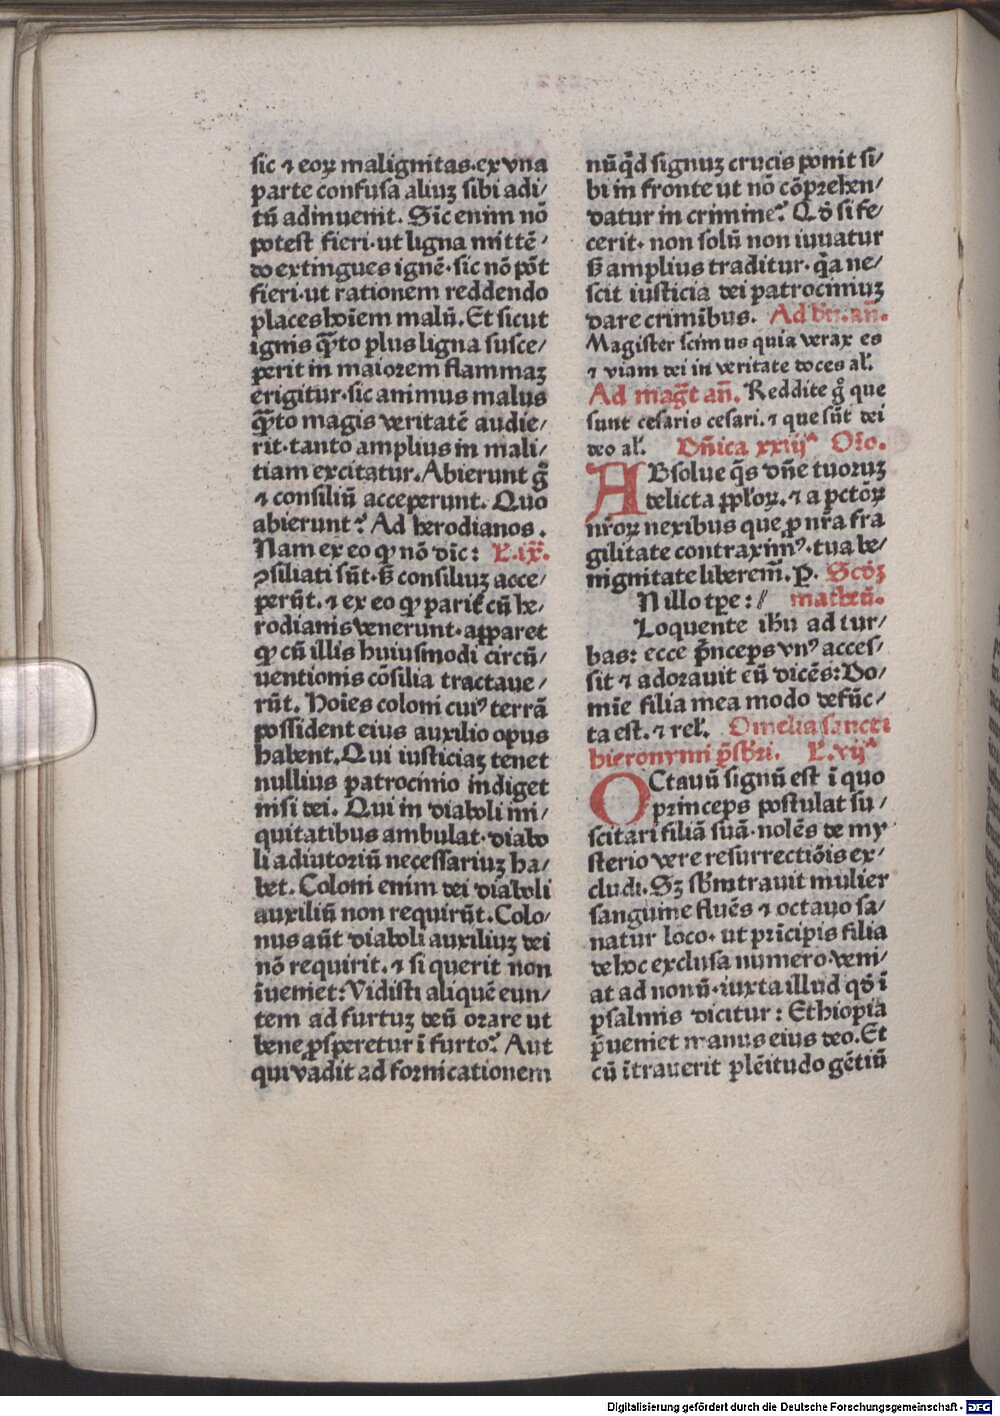 sic ⁊ eoꝝ malignitas·ex vna
parte confusa aliuꝫ sibi adi-
tū adinuenit. Sic enim nō
potest fieri·ut ligna mittē-
do extingues ignē·sic nō pōt
fieri·ut rationem reddendo
places hoīem malū. Et sicut
ignis q̄ꝫto plus ligna susce/
perit in maiorem flammaꝫ
erigitur·sic animus malus
q̄ꝫto magis veritatē audie/
rit·tanto amplius in mali/
tiam excitatur. Abierunt gͦ
⁊ consiliū acceperunt. Quo
abierunt? Ad herodianos.
Nam ex eo ꝙ nō dic̄: L.ix.
ꝯsiliati sūt·sꝫ consiliuꝫ acce/
perūt.⁊ ex eo ꝙ parit̄ cū he/
rodianis venerunt·apparet
ꝙ cū illis huiusmodi circū/
uentionis cōsilia tractaue/
rūt. Hoies coloni cuiꝰ terrā
possident eius auxilio opus
habent. Qui iusticiaꝫ tenet
nullius patrocinio indiget
nisi dei. Qui in diaboli ini/
quitatibus ambulat·diabo
li adiutoriū necessariuꝫ ha/
bet. Coloni enim dei diaboli
auxiliū non requirūt. Colo/
nus aūt diaboli auxiliuꝫ dei
nō requirit.⁊ si querit non
īueniet: Vidisti aliquē eun/
tem ad furtuꝫ deū orare ut
bene ꝓsperetur ī furto? Aut
qui vadit ad fornicationem
nūq̄d signuꝫ crucis ponit si/
bi in fronte ut nō cōprehen/
datur in crimine? Qd̄ si fe/
cerit· non solū non iuuatur
sꝫ amplius traditur·q̄a ne/
scit iusticia dei patrociniuꝫ
dare crimībus. Ad bn̄.an̄.
Magister scimus quia verax es
⁊ viam dei in veritate doces al̄.
Ad maḡt an̄. Reddite gͦ que
sunt cesaris cesari.⁊ que sūt dei
deo al̄. Dn̄ica xxiijᵃ Oꝛo.
ABsolue q̄s dn̄e tuoruꝫ
delicta ppl̄oꝝ.⁊ a pctōꝝ
nr̄oꝝ nexibus que ꝓ nr̄a fra
gilitate contraximꝰ·tua be/
nignitate liberem̄. P. Scd̄ꝫ
N illo tꝑe:// matheū.
Loquente ihū ad tur/
bas: ecce p̄nceps vnꝰ acces/
sit ⁊ adorauit eū dicēs: Do/
mīe filia mea modo defūc/
ta est.⁊ rel̄. Omelia sancti
hieronymi p̄sb̄ri. L.xijᵃ
OCtauū signū est ī quo
princeps postulat su/
scitari filiā suā·nolēs de my
sterio vere resurrectiōis ex/
cludi. Sꝫ sb̄intrauit mulier
sanguine fluēs ⁊ octauo sa/
natur loco· ut prīcipis filia
de hoc exclusa numero veni/
at ad nonū·iuxta illud qd̄ ī
psalmis dicitur: Ethiopia
p̄ueniet manus eius deo. Et
cū ītrauerit plēitudo gētiū
Digitalisierung gefördert durch die Deutsche Forschungsgemeinschaft - DFG